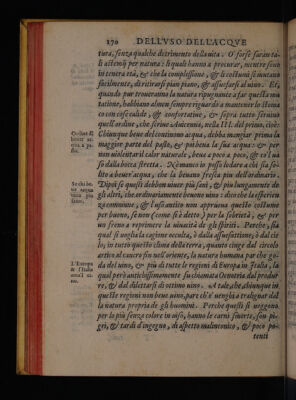 170 DELL'VSO DELL'ACQVE
tura, senza qualche detrimento della uita. O' forse saran ta-
li astemij per natura: li quali hanno a procurar, mentre sono
in tenera età, & che la complessione, & li costumi si mutano
facilmente, di ritirarsi pian piano, & assuefarsi al uino. Et,
quando pur troueranno la natura ripugnante a far questa mu
tatione, habbiano almen sempre riguardo a mantener lo stoma
co con cose calide, & confortatiue, & sopra tutto seruino
quell'ordine, che scriue Auicenna, nella III. del primo, cioè:
Chiunque beue del continuo acqua, debba mangiar prima la
maggior parte del pasto, & poi beua la sua acqua: & per
non uiolentar il calor naturale, beue a poco a poco, & co'l ua
so dalla bocca stretta. Ne manco io posso lodare a chi sia so-
lito a beuer'acqua, che la beuano fresca piu dell'ordinario.
Dipoi se questi debbon uiuer piu sani, & piu lungamente de
gli altri, che ordinariamente beuono uino: dico che la esperien
za commune, & l'uso antico non approuua questo costume
per buono, se non (come si è detto) per la sobrietà, & per
un freno a reprimere la uiuacità de gli spiriti. Perche, sia
qual si uoglia la cagione occulta, ò dalla assuefattione, ò dal cie
lo, in tutto questo clima della terra, quanto cinge dal circolo
artico al cancro fin nell'oriente, la natura humana par che go-
da del uino, & piu di tutte le regioni di Europa in Italia, la
qual però antichissimamente fu chiamata Oenotria dal produr-
re, & dal dilettarsi di ottimo uino. A tale, che chiunque in
queste regioni non beue uino, pare ch'e' uenghi a tralignar dal
la natura propria de gli huomini. Perche questi si ueggono
per lo piu senza colore in uiso, hanno le carni smorte, son pi-
gri, & tardi d'ingegno, di aspetto malinconico, & poco po-
tenti
Costum di
beuer ac-
qua a pa-
sto.
Se chi be-
ue acqua
uiua piu
sano.
L'Europa
& l'Italia
ama il ui-
no.